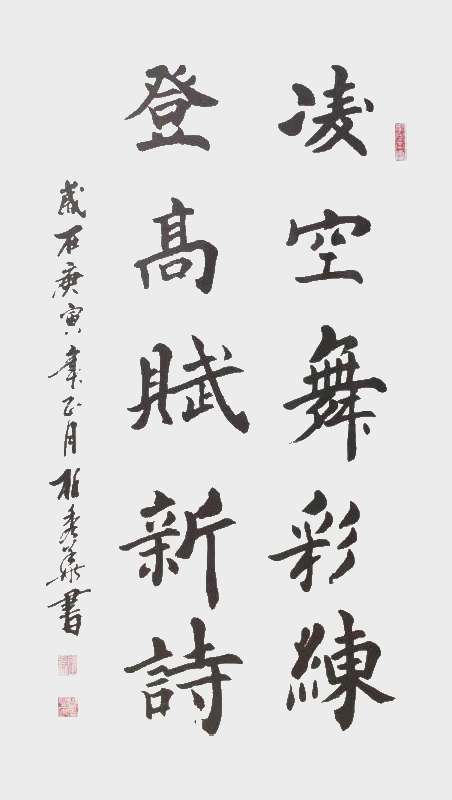 凌空舞彩練
登高賦新詩
歲在庚寅年正月 秀英書